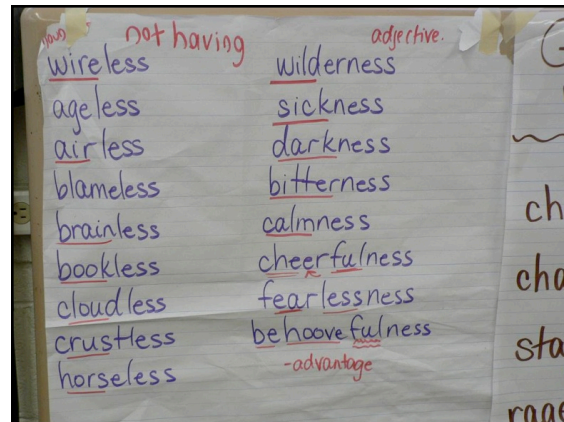 noun
not having
adjective.
wireless
ageless
airless
blameless
brainless
bookless
cloudless
crustless
horseless
wilderness
sickness
darkness
bitterness
calmness
cheerfulness
fearlessness
behoovefulness
-advantage
ch
cha
sta